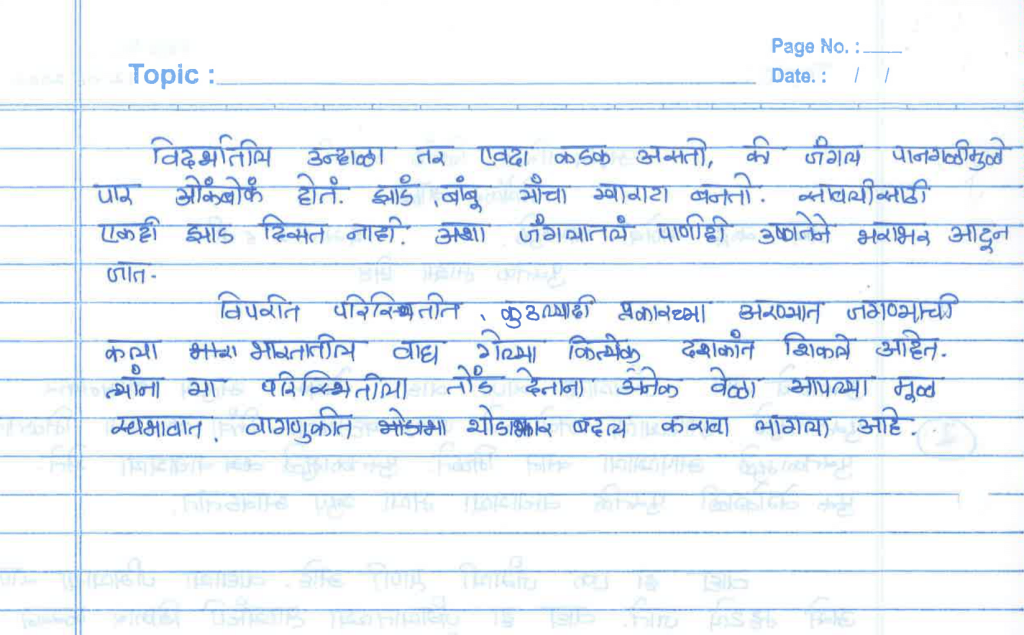 Page No. :
Topic :
Date. : / /
विदर्भातील उन्हाळा तर एवढा कडक असतो, की जंगल पानगळीमुळे
पार ओकंबोकं होतं. झाडं, बांबू यांचा खराटा बनतो. सावलीसाठी
एकही झाड दिसत नाही. अशा जंगलातलं पाणीही उष्णतेने भराभर आटून
जातं.
विपरीत परिस्थितीत, कुठल्याही प्रकारच्या अरण्यात जगण्याची
कला भारतातील वाघ गेल्या कित्येक दशकांत शिकले आहेत.
त्यांना या परिस्थितीला तोंड देताना अनेक वेळा आपल्या मूळ
स्वभावात, वागणुकीत थोडाफार बदल करावा लागला आहे.